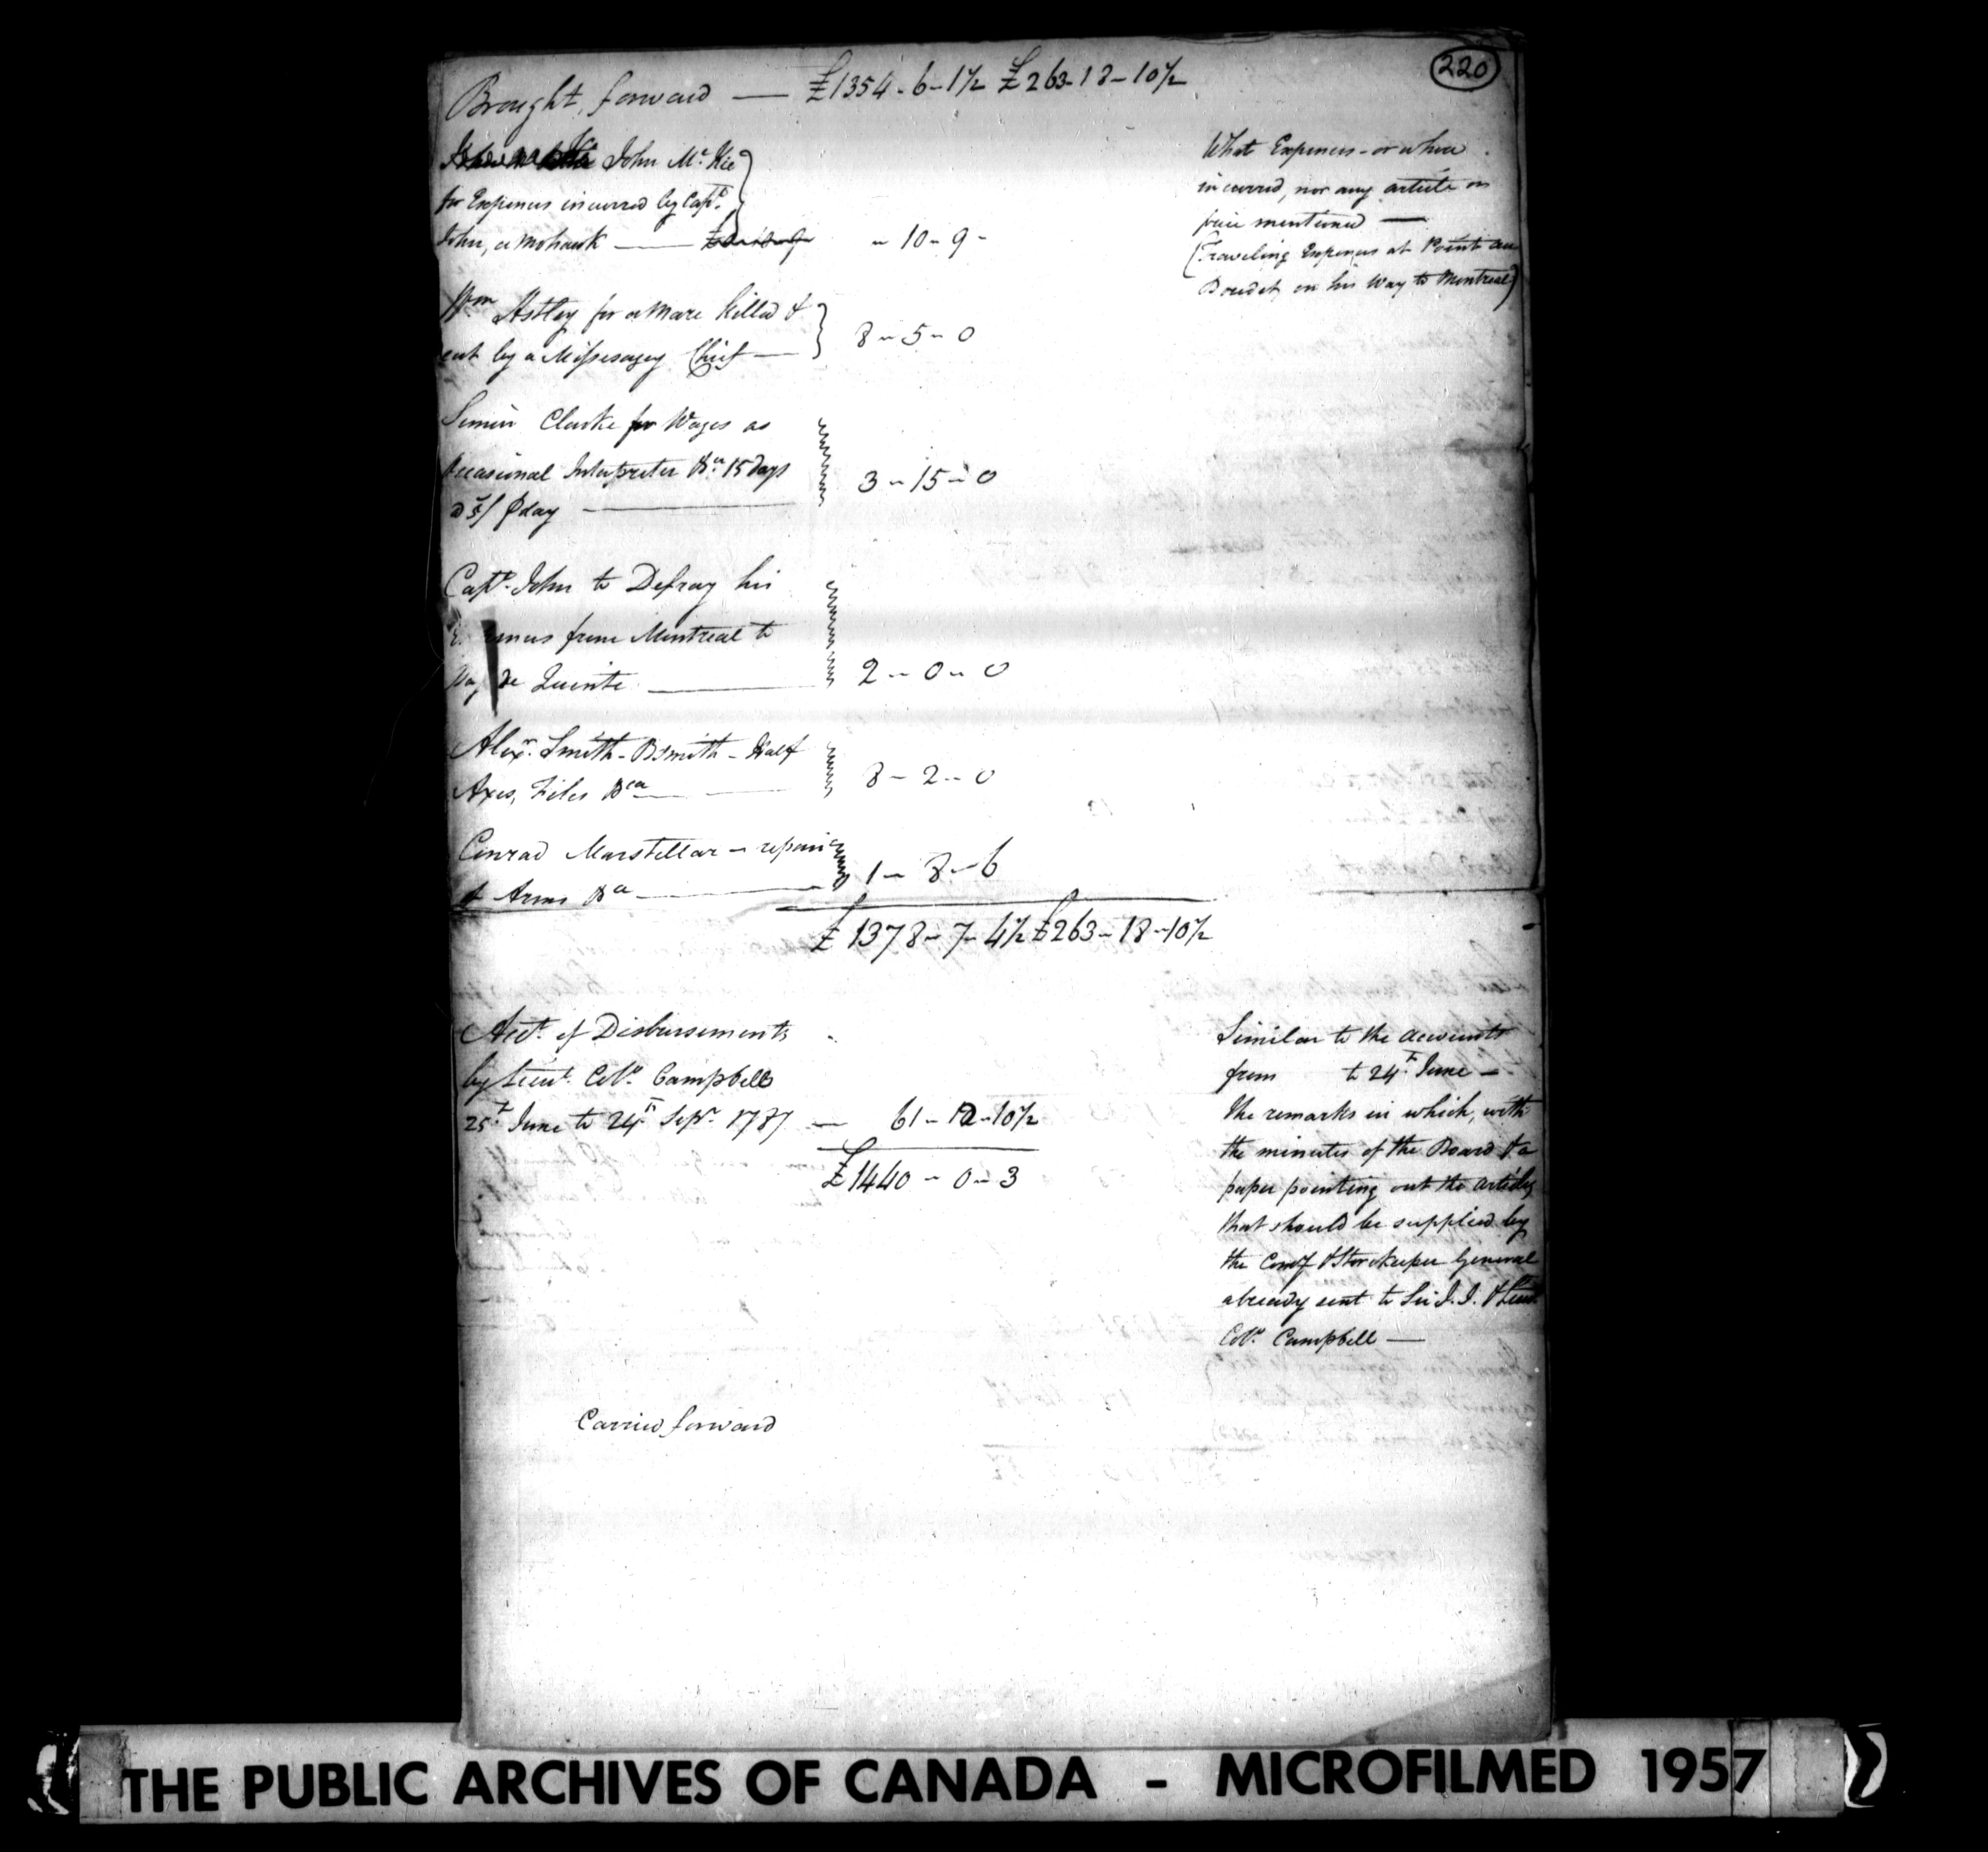 220
Brought forward — £1354-6-1½ £263-18-10½
John McKee
for Expences incurred by Capt.
John, a Mohawk — " 10 " 9 "
What Expences - or where
incurred, nor any article or
price mentioned —
(Traveling Expences at Point au
Boudet, on his Way to Montreal)
Wm Astley for a Mare killed &
eat by a Missesagey Chief — 8 " 5 " 0
Simon Clarke for Wages as
Occasional Interpreter &ca 15 days
a 5/ ⅌ day — 3 " 15 " 0
Capt. John to Defray his
Expences from Montreal to
Bay de Quinte — 2 " 0 " 0
Alexr. Smith - Bsmith - Half
Axes, Files &ca — 8 - 2 - 0
Conrad Marstellar - repairs
of Arms &ca — 1 - 8 - 6
£1378 - 7 - 4½ £263 - 18 - 10½
Acct. of Disbursements
by Lieut. Colo. Campbell
25th June to 24th Sepr. 1787 — 61 - 12 - 10½
£1440 - 0 - 3
Similar to the accounts
from to 24th June —
the remarks in which, with
the minutes of the Board & a
paper pointing out the articles
that should be supplied by
the Comy & Storekeeper General
already sent to Sir J. J. & Lieut
Colo. Campbell —
Carried forward
THE PUBLIC ARCHIVES OF CANADA - MICROFILMED 1957